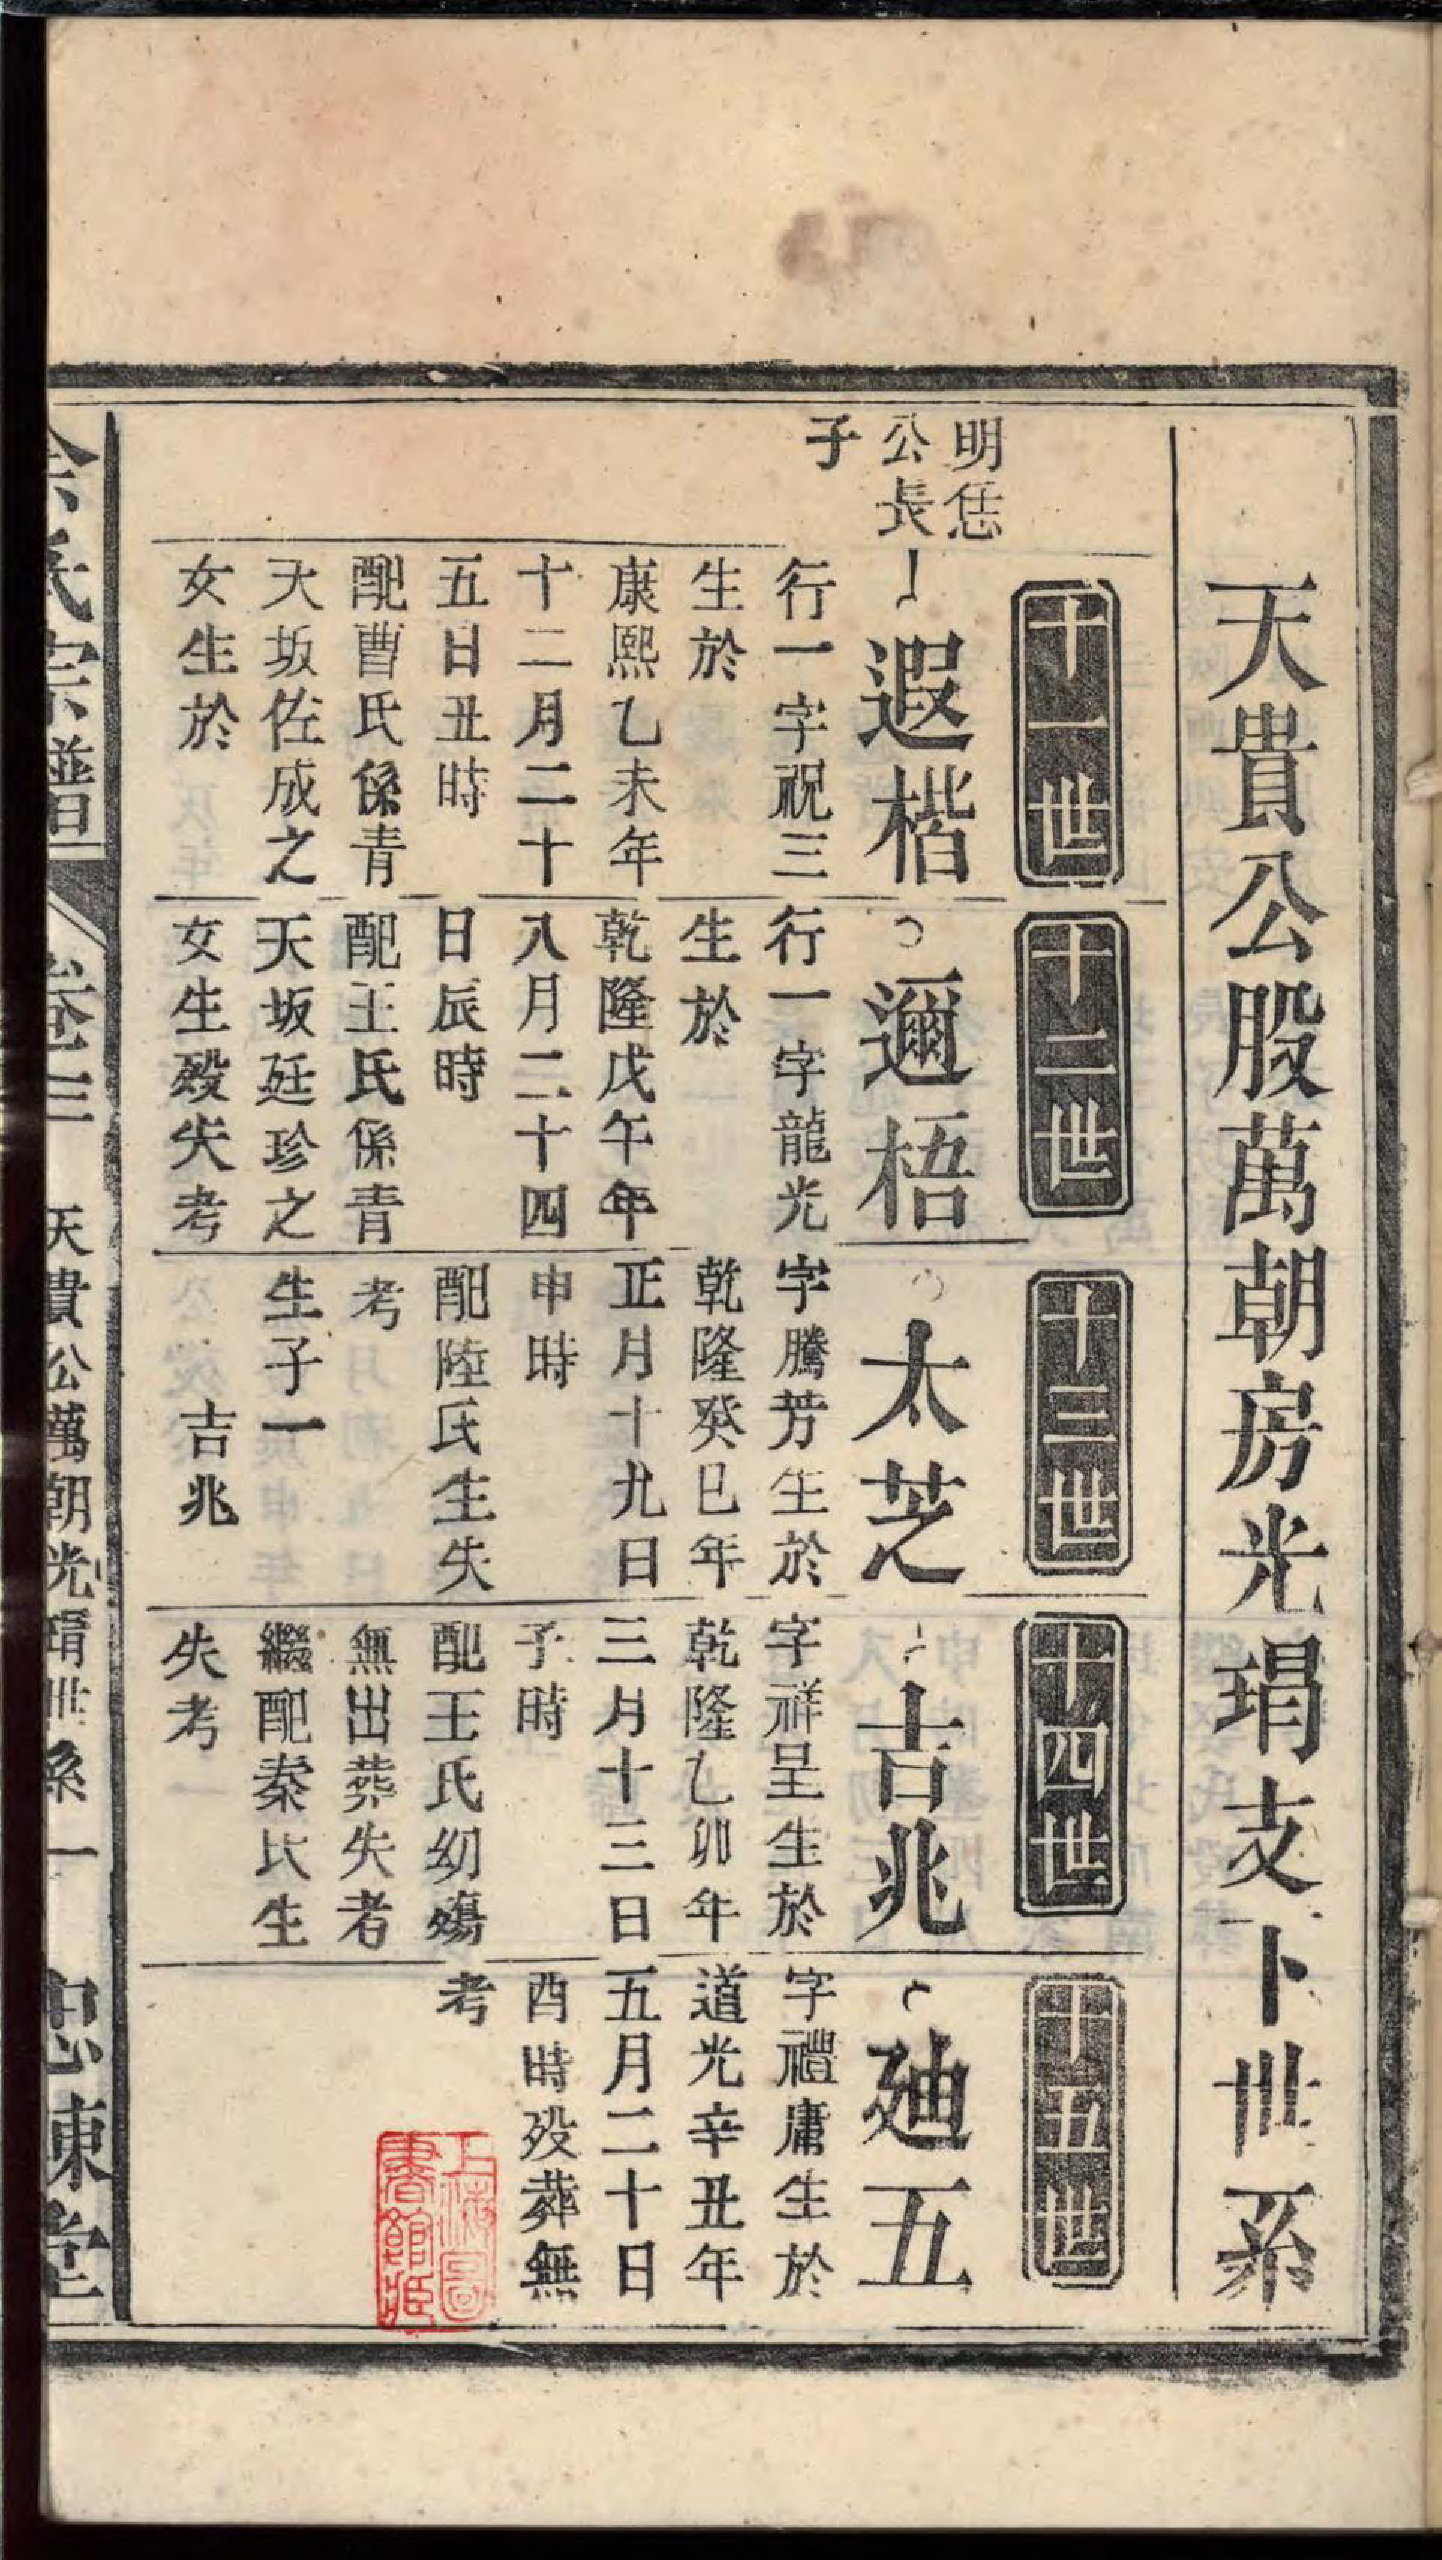 天貴公股萬朝房光琄支卜世系
十一世
十二世
十三世
十四世
十五世
明恁
公長
子
遐楷
行一字祝三
生於
康熙乙未年
十二月二十
五日丑時
配曹氏係青
大坂佐成之
女生於
邇梧
行一字龍光
生於
乾隆戊午年
八月二十四
日辰時
配王氏係青
天坂廷珍之
女生歿失考
太芝
字騰芳生於
乾隆癸巳年
正月十九日
申時
配陸氏生失
考
生子一
吉兆
吉兆
字祥呈生於
乾隆乙卯年
三月十三日
子時
配王氏幼殤
無出葬失考
繼配秦氏生
失考
廸五
字禮庸生於
道光辛丑年
五月二十日
酉時歿葬無
考
上海圖
書館藏
氏宗譜 卷三 天貴公萬朝光琄世系一 忠陳堂